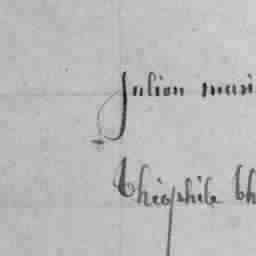 Julion mari
théophile th